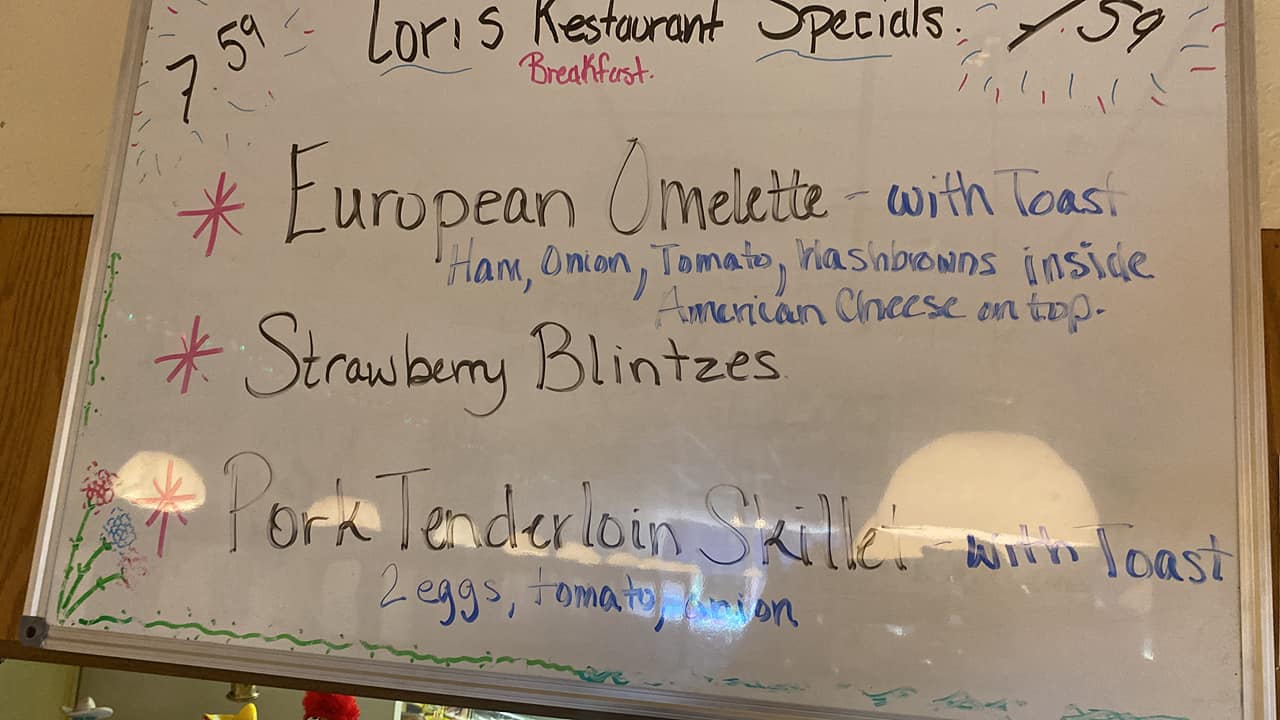 7 59 Lori's Restaurant Specials. 7.59
Breakfast.
European Omelette - with Toast
Ham, Onion, Tomato, Hashbrowns inside
American Cheese on top.
Strawberry Blintzes
Pork Tenderloin Skillet - with Toast
2 eggs, tomato, onion